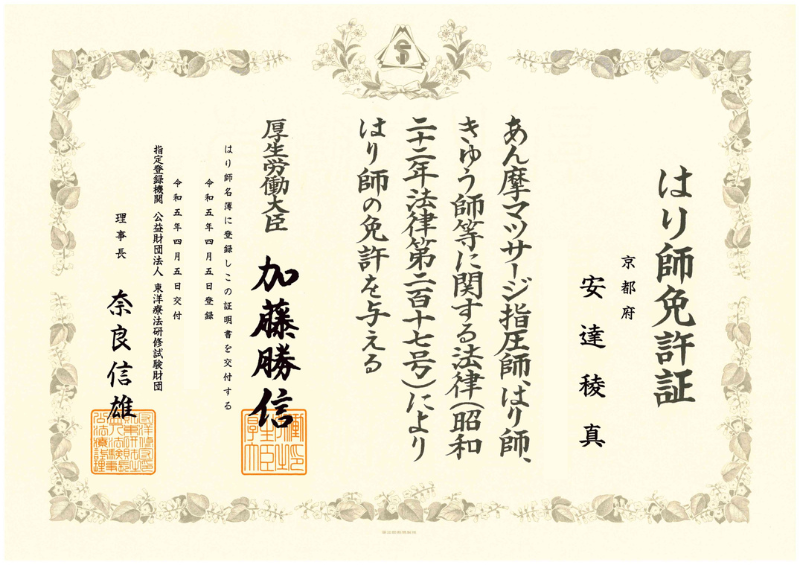 はり師免許証
京都府
安達稜真
あん摩マツサージ指圧師、はり師、
きゆう師等に関する法律(昭和
二十二年法律第二百十七号)により
はり師の免許を与える
厚生労働大臣 加藤勝信
はり師名簿に登録しこの証明書を交付する
令和五年四月五日登録
令和五年四月五日交付
指定登録機関 公益財団法人 東洋療法研修試験財団
理事長 奈良信雄